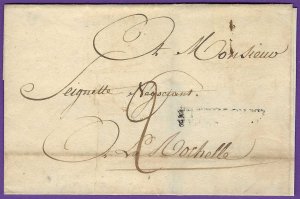 A Monsieur
Seignette Negociant.
A La Rochelle